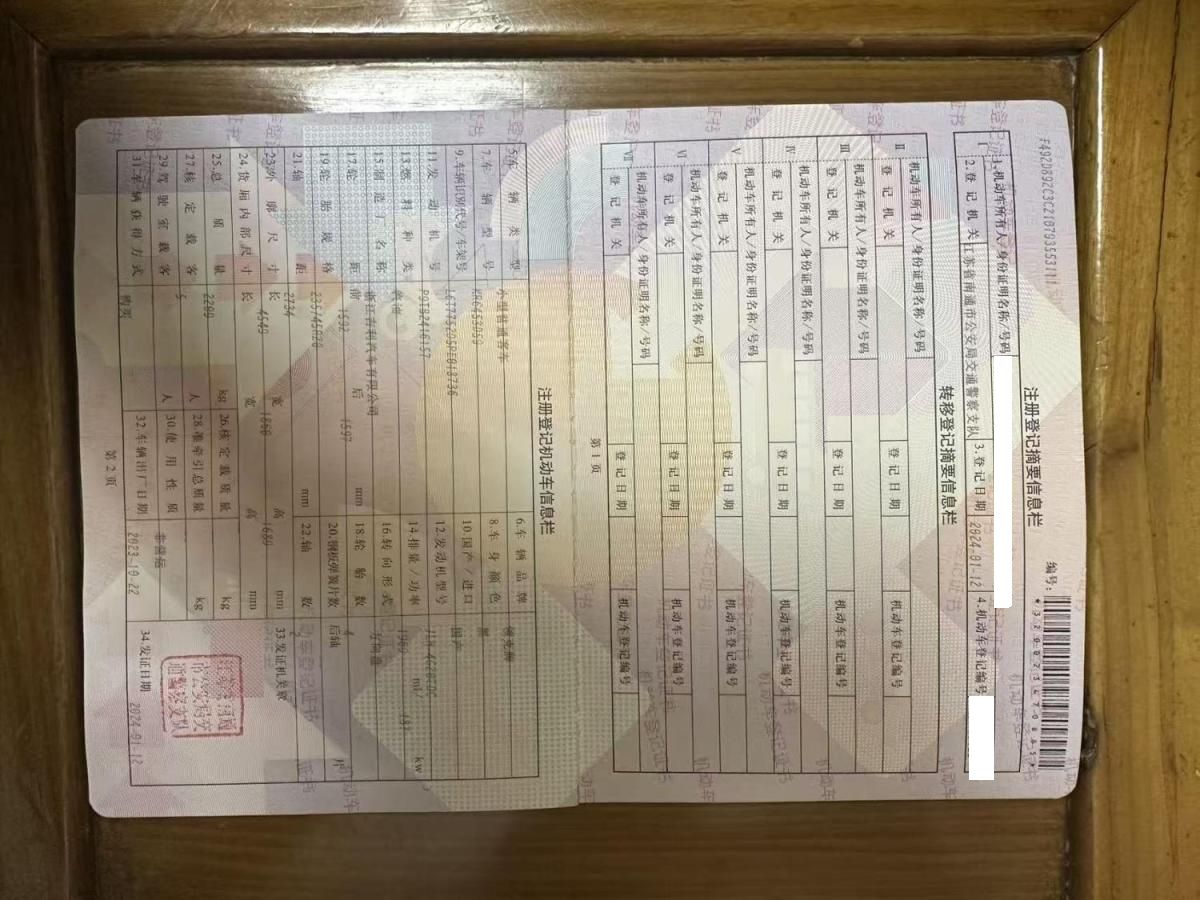 注册登记摘要信息栏
编号:
1.机动车所有人/身份证明名称/号码
2.登记机关 江苏省南通市公安局交通警察支队 3.登记日期 2024-01-12 4.机动车登记编号
转移登记摘要信息栏
II 机动车所有人/身份证明名称/号码
登记机关 登记日期 机动车登记编号
III 机动车所有人/身份证明名称/号码
登记机关 登记日期 机动车登记编号
IV 机动车所有人/身份证明名称/号码
登记机关 登记日期 机动车登记编号
V 机动车所有人/身份证明名称/号码
登记机关 登记日期 机动车登记编号
VI 机动车所有人/身份证明名称/号码
登记机关 登记日期 机动车登记编号
VII 机动车所有人/身份证明名称/号码
登记机关 登记日期 机动车登记编号
第1页
注册登记机动车信息栏
5.车辆类型 小型普通客车 6.车辆品牌
7.车辆型号 8.车身颜色 黑
9.车辆识别代号/车架号 10.国产/进口 国产
11.发动机号 12.发动机型号
13.燃料种类 14.排量/功率 ml/ kw
15.制造厂名称 浙江吉利汽车有限公司 16.转向形式 方向盘
17.轮距 前 1592 后 1597 mm 18.轮胎数 4
19.轮胎规格 235/45R20 20.钢板弹簧片数 后轴 片
21.轴距 2734 mm 22.轴数 2
23.外廓尺寸 长 4549 宽 1860 高 1689 mm 33.发证机关章
24.货厢内部尺寸 长 宽 高 mm
25.总质量 kg 26.核定载质量 kg
27.核定载客 5 人 28.准牵引总质量 kg
29.驾驶室载客 人 30.使用性质 非营运
31.车辆获得方式 购买 32.车辆出厂日期 2023-10-22 34.发证日期 2024-01-12
第2页